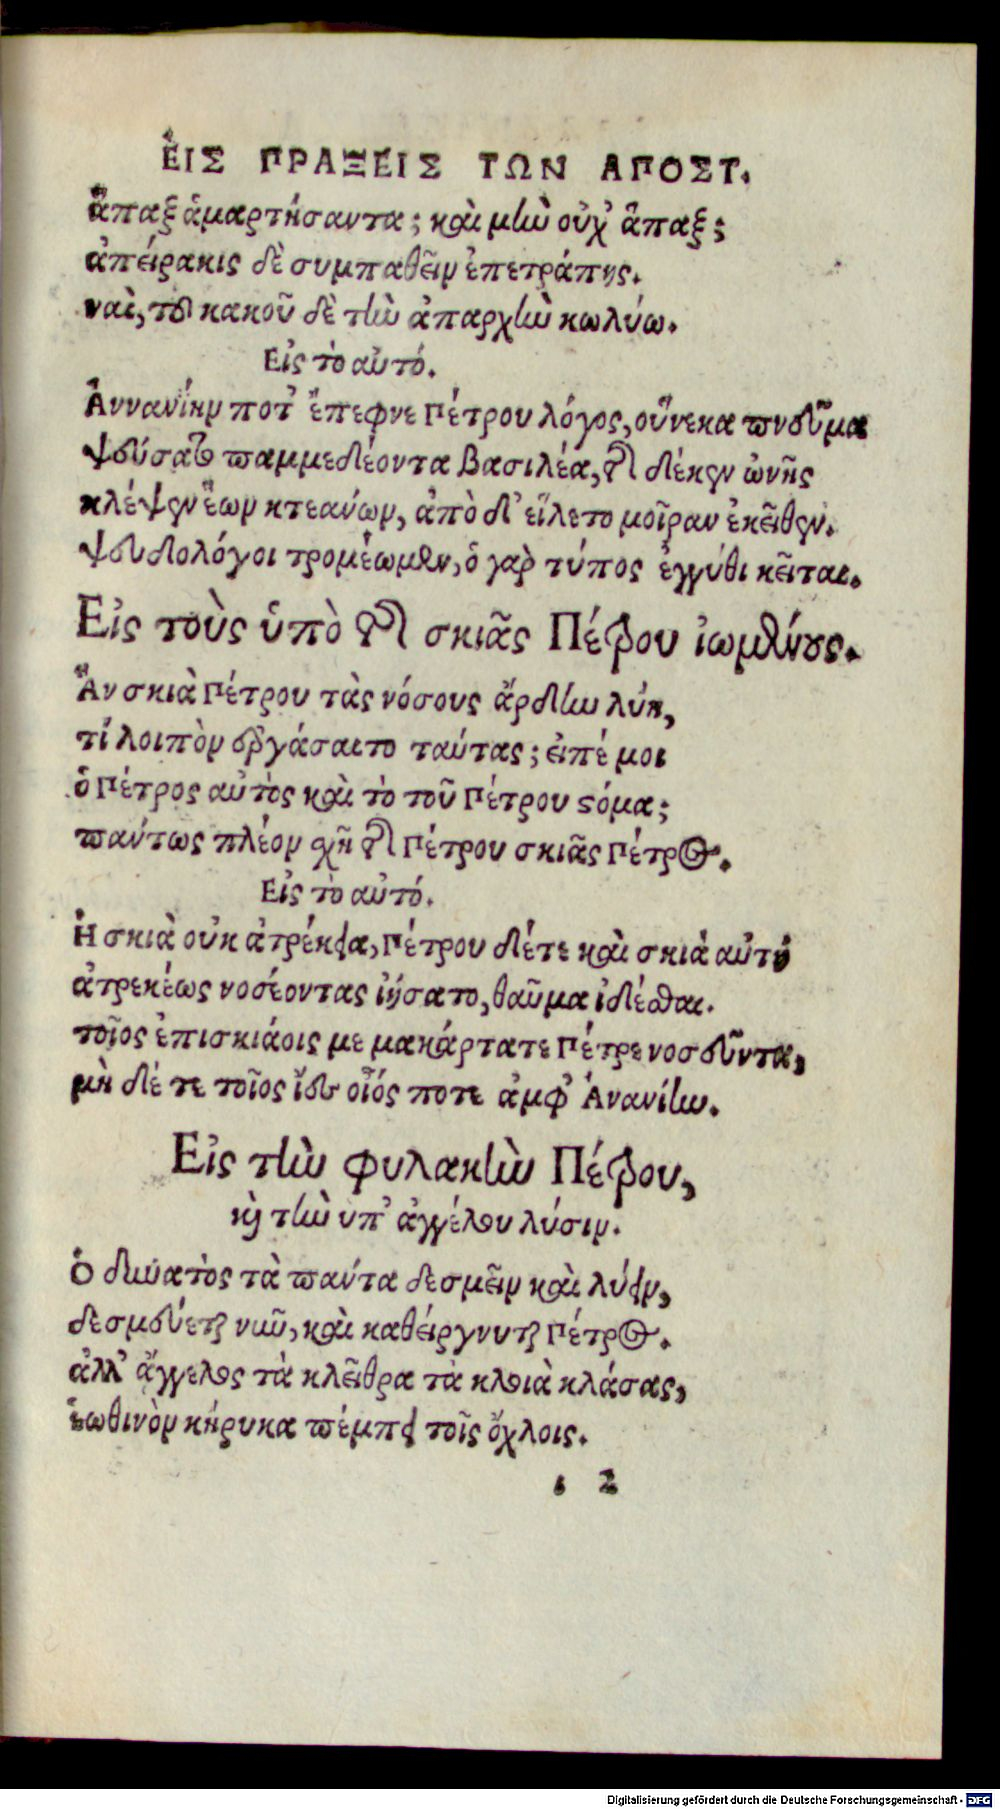 ἘΙΣ ΠΡΑΞΕΙΣ ΤΩΝ ΑΠΟΣΤ.
ἅπαξ ἁμαρτήσαντα; καὶ μὴν οὐχ̓ ἅπαξ;
ἀπειράκις δὲ συμπαθεῖν ἐπετράπης.
ναὶ, τοῦ κακοῦ δὲ τὴν ἀπαρχὴν κωλύω.
Εἰς τὸ αὐτό.
Ἀννανίην ποτ' ἔπεφνε Πέτρου λόγος, οὕνεκα πνεῦμα
ψεύσατο παμμεδέοντα βασιλέα, τῆς δέ κεν ὠνῆς
κλέψεν ἑῶν κτεάνων, ἀπὸ δ' εἵλετο μοῖραν ἐκεῖθεν.
ψευδολόγοι τρομέωμεν, ὁ γὰρ τύπος ἐγγύθι κεῖται.
Εἰς τοὺς ὑπὸ τῆς σκιᾶς Πέτρου ἰωμένους.
Ἂν σκιὰ Πέτρου τὰς νόσους ἄρδην λύῃ,
τί λοιπὸν ἐργάσαιτο ταύτας; εἰπέ μοι
ὁ Πέτρος αὐτὸς καὶ τὸ τοῦ Πέτρου στόμα;
πάντως πλέον σχῇ τῆς Πέτρου σκιᾶς Πέτρος.
Εἰς τὸ αὐτό.
Ἡ σκιὰ οὐκ ἀτρέκεια, Πέτρου δέ τε καὶ σκιὰ αὐτὴ
ἀτρεκέως νοσέοντας ἰήσατο, θαῦμα ἰδέσθαι.
τοῖος ἐπισκιάοις με μακάρτατε Πέτρε νοσεῦντα,
μὴ δέ τε τοῖος ἴδευ οἷός ποτε ἀμφ' Ἀνανίην.
Εἰς τὴν φυλακὴν Πέτρου,
καὶ τὴν ὑπ' ἀγγέλου λύσιν.
Ὁ δυνατὸς τὰ πάντα δεσμεῖν καὶ λύειν,
δεσμεύεται νῦν, καὶ καθείργνυται Πέτρος.
ἀλλ' ἄγγελος τὰ κλεῖθρα τὰ κλοιὰ κλάσας,
ἑωθινὸν κήρυκα πέμπει τοῖς ὄχλοις.
ι 2
Digitalisierung gefördert durch die Deutsche Forschungsgemeinschaft - DFG